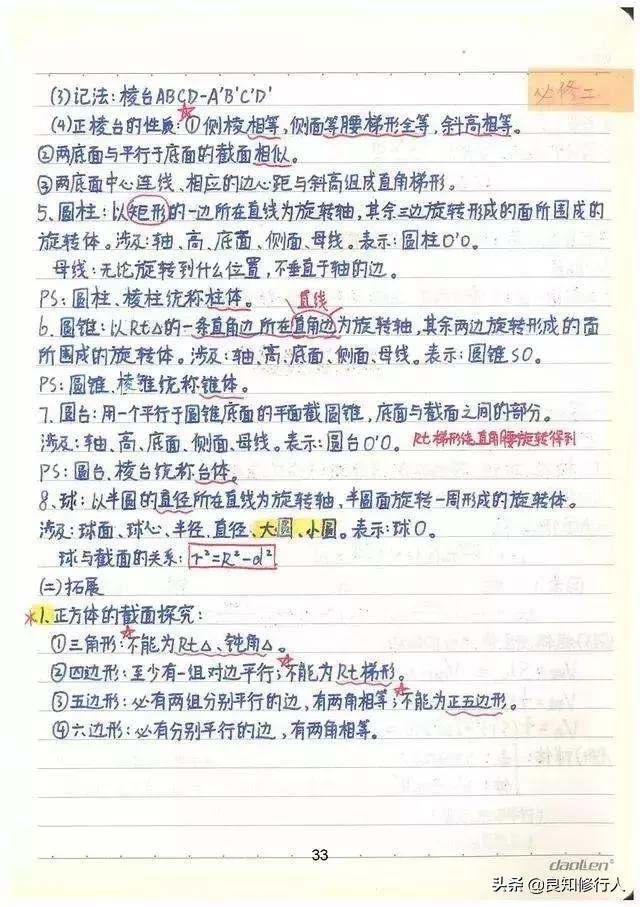 必修二
(3)记法:棱台ABCD-A'B'C'D'
(4)正棱台的性质:①侧棱相等,侧面等腰梯形全等,斜高相等。
②两底面与平行于底面的截面相似。
③两底面中心连线、相应的边心距与斜高组成直角梯形。
5、圆柱:以矩形的一边所在直线为旋转轴,其余三边旋转形成的面所围成的
旋转体。涉及:轴、高、底面、侧面、母线。表示:圆柱O'O。
母线:无论旋转到什么位置,不垂直于轴的边。
PS:圆柱、棱柱统称柱体。
直线
6、圆锥:以Rt△的一条直角边所在直角边为旋转轴,其余两边旋转形成的面
所围成的旋转体。涉及:轴、高、底面、侧面、母线。表示:圆锥SO。
PS:圆锥、棱锥统称锥体。
7、圆台:用一个平行于圆锥底面的平面截圆锥,底面与截面之间的部分。
涉及:轴、高、底面、侧面、母线。表示:圆台O'O。 Rt梯形绕直角腰旋转得到
PS:圆台、棱台统称台体。
8、球:以半圆的直径所在直线为旋转轴,半圆面旋转一周形成的旋转体。
涉及:球面、球心、半径、直径、大圆、小圆。表示:球O。
球与截面的关系:r²=R²-d²
(二)拓展
*1.正方体的截面探究:
①三角形:不能为Rt△、钝角△。
②四边形:至少有一组对边平行;不能为Rt梯形。
③五边形:必有两组分别平行的边,有两角相等;不能为正五边形。
④六边形:必有分别平行的边,有两角相等。
33
daolen
头条 @良知修行人